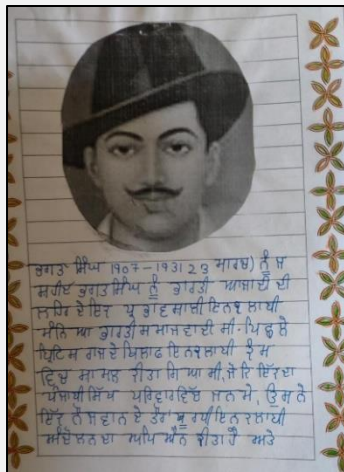 ਭਗਤ ਸਿੰਘ 1907-1931 23 ਮਾਰਚ) ਨੂੰ ਜ
ਸ਼ਹੀਦ ਭਗਤ ਸਿੰਘ ਨੂੰ ਭਾਰਤੀ ਆਜ਼ਾਦੀ ਦੀ
ਲਹਿਰ ਦੇ ਇਕ ਪ੍ਰਭਾਵਸ਼ਾਲੀ ਇਨਕਲਾਬੀ
ਮੰਨਿਆ ਭਾਰਤੀ ਸਮਾਜਵਾਦੀ ਸੀ
ਬ੍ਰਿਟਿਸ਼ ਰਾਜ ਦੇ ਖਿਲਾਫ ਇਨਕਲਾਬੀ
ਵਿਚ ਸ਼ਾਮਲ ਕੀਤਾ ਗਿਆ ਸੀ,
ਪੰਜਾਬੀ ਸਿੱਖ ਪਰਿਵਾਰ ਵਿੱਚ ਜਨਮੇ, ਉਸਨੇ
ਇੱਕ ਨੌਜਵਾਨ ਦੇ ਤੌਰ
ਅੰਦੋਲਨ ਦਾ ਕੀਤਾ ਹੈ ਅਤੇ